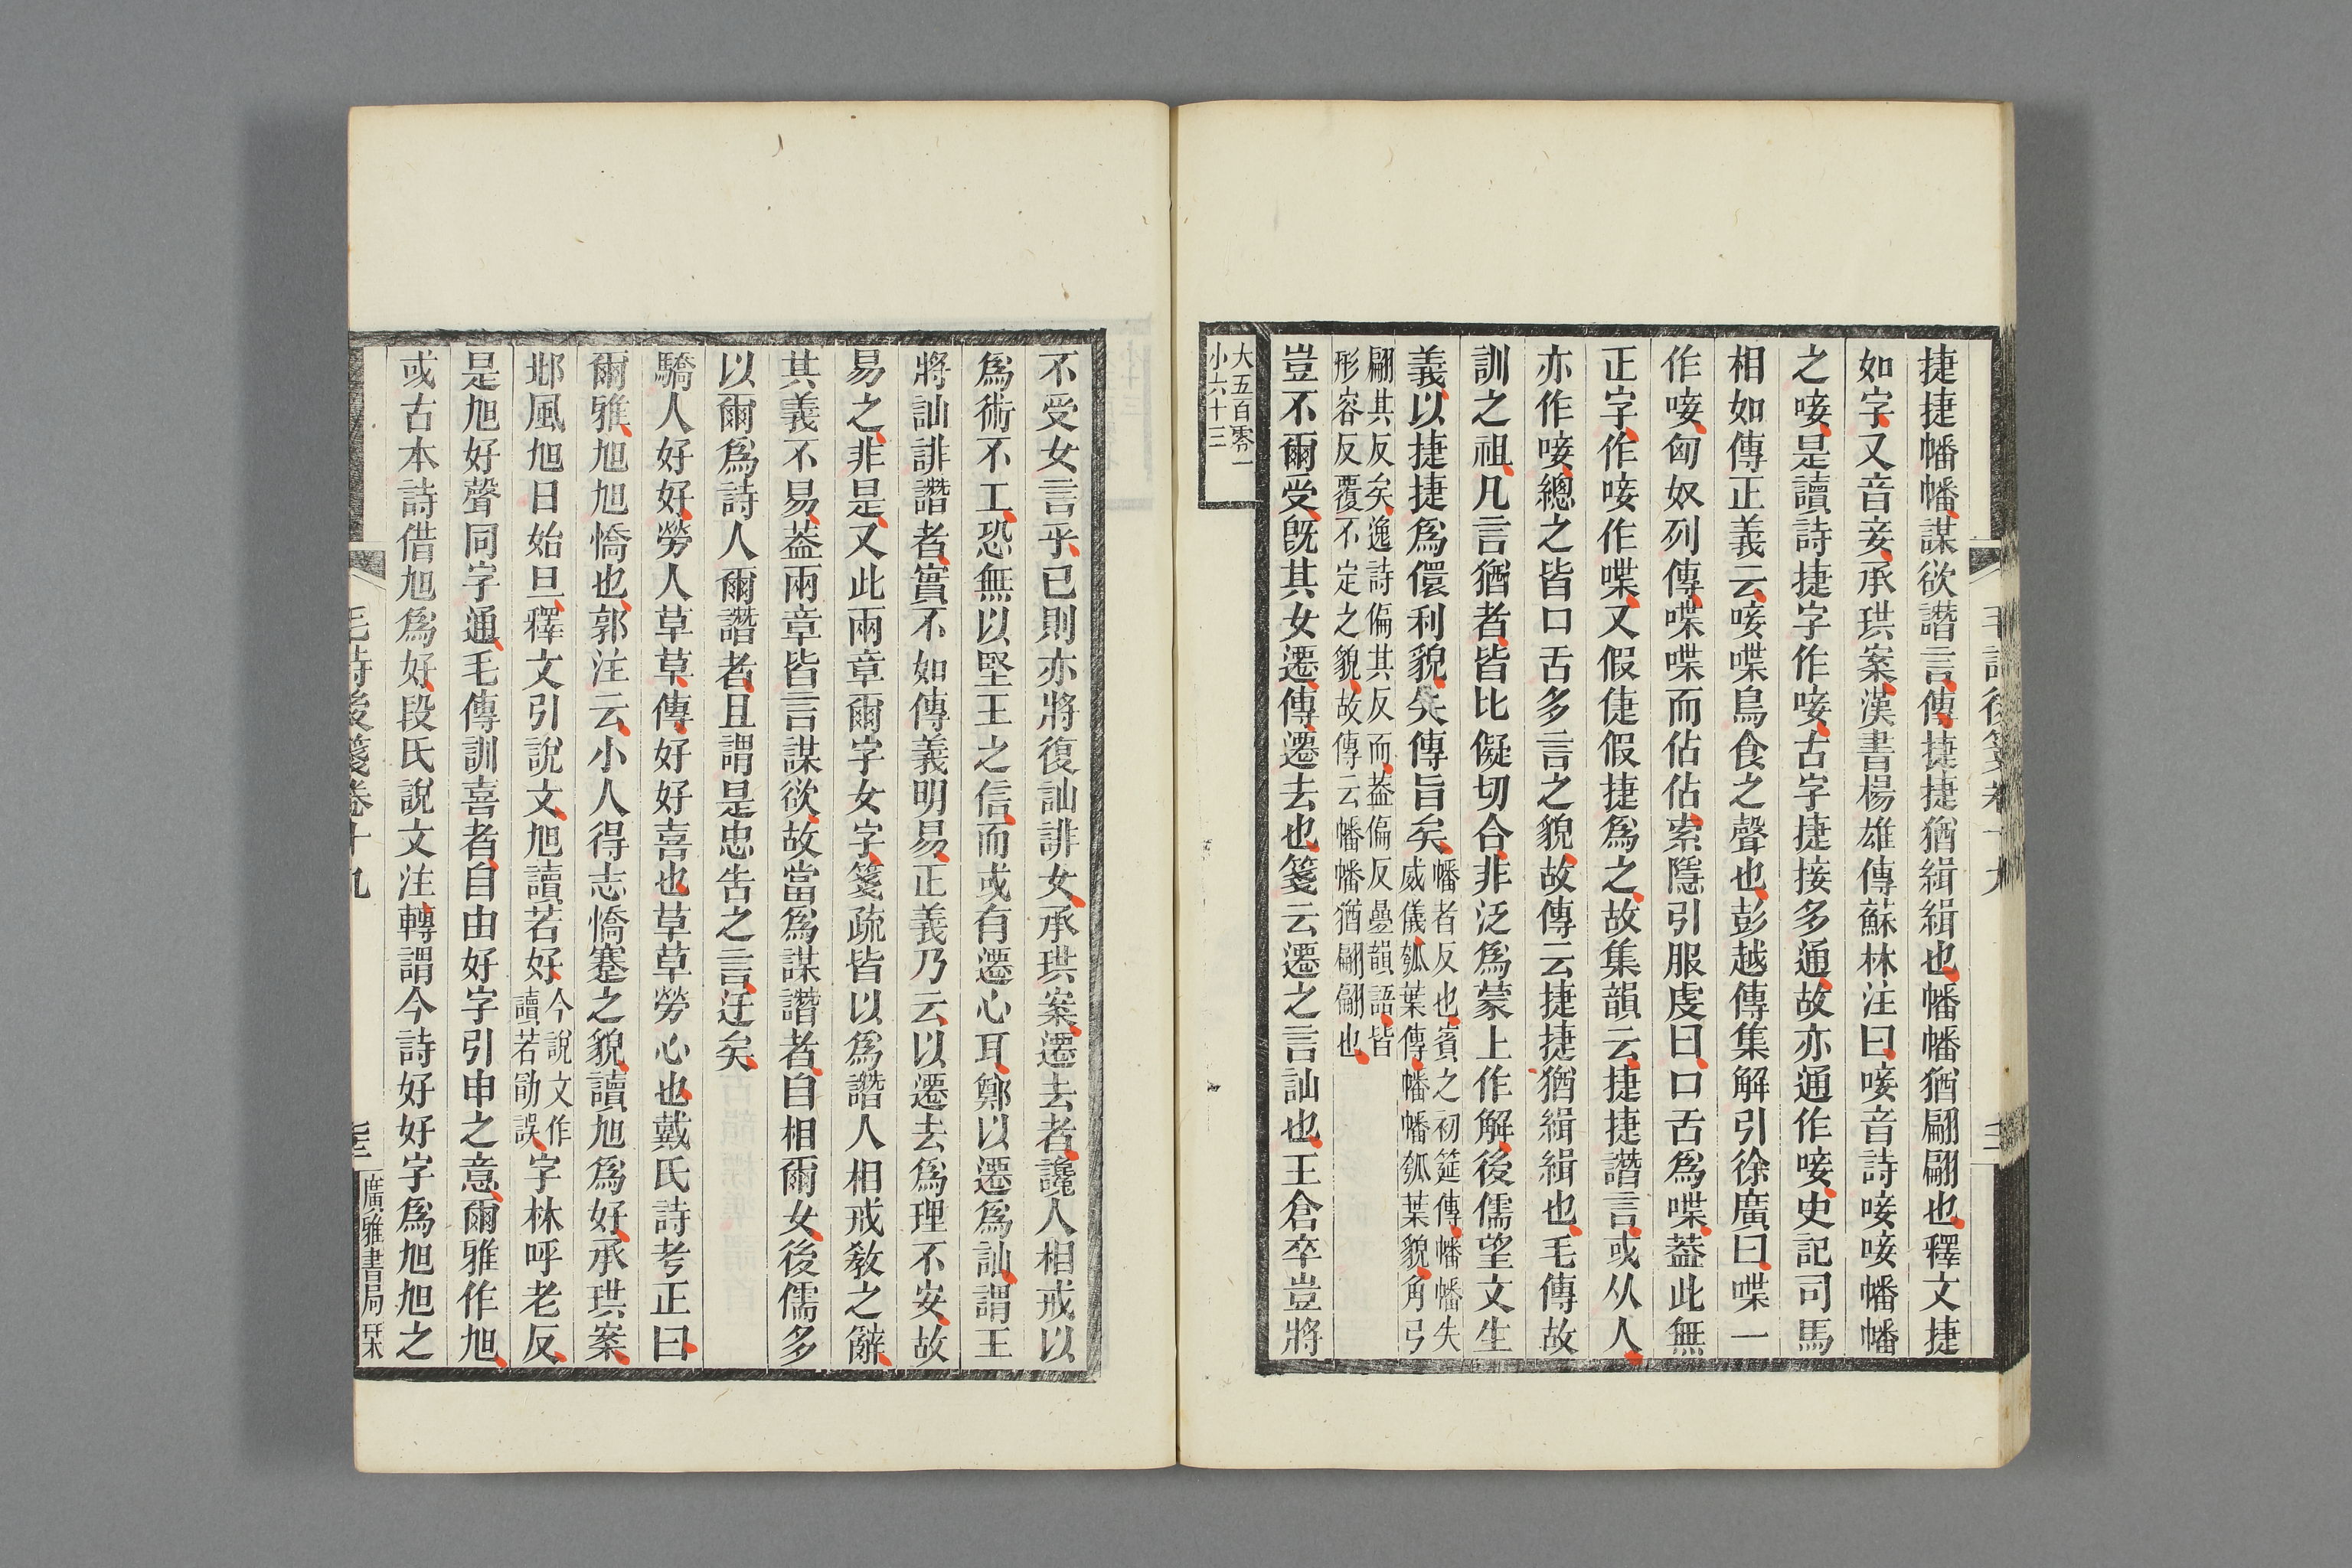 捷捷幡幡謀欲譖言傳捷捷猶緝緝也幡幡猶翩翩也釋文捷
如字又音妾承珙案漢書楊雄傳蘇林注曰唼音詩唼唼幡幡
之唼是讀詩捷字作唼古字捷接多通故亦通作唼史記司馬
相如傳正義云唼喋鳥食之聲也彭越傳集解引徐廣曰喋一
作唼匈奴列傳喋喋而佔佔索隱引服虔曰口舌爲喋葢此無
正字作唼作喋又假倢假捷爲之故集韻云捷捷譖言或从人
亦作唼總之皆口舌多言之貌故傳云捷捷猶緝緝也毛傳故
訓之祖凡言猶者皆比儗切合非泛爲蒙上作解後儒望文生
義以捷捷爲儇利貌失傳旨矣
幡者反也賓之初筵傳幡幡失
威儀瓠葉傳幡幡瓠葉貌角弓
翩其反矣逸詩偏其反而葢偏反疊韻語皆
形容反覆不定之貌故傳云幡幡猶翩翩也
豈不爾受旣其女遷傳遷去也箋云遷之言訕也王倉卒豈將
大五百零一
小六十三
不受女言乎已則亦將復訕誹女承珙案遷去者讒人相戒以
爲術不工恐無以堅王之信而或有遷心耳鄭以遷爲訕謂王
將訕誹譖者實不如傳義明易正義乃云以遷去爲理不安故
易之非是又此兩章爾字女字箋疏皆以爲譖人相戒敎之辭
其義不易葢兩章皆言謀欲故當爲謀譖者自相爾女後儒多
以爾爲詩人爾譖者且謂是忠告之言迂矣
驕人好好勞人草草傳好好喜也草草勞心也戴氏詩考正曰
爾雅旭旭憍也郭注云小人得志憍蹇之貌讀旭爲好承珙案
邶風旭日始旦釋文引說文旭讀若好
今說文作
讀若勖誤
字林呼老反
是旭好聲同字通毛傳訓喜者自由好字引申之意爾雅作旭
或古本詩借旭爲好段氏說文注轉謂今詩好好字爲旭旭之
毛詩後箋卷十九
廣雅書局栞